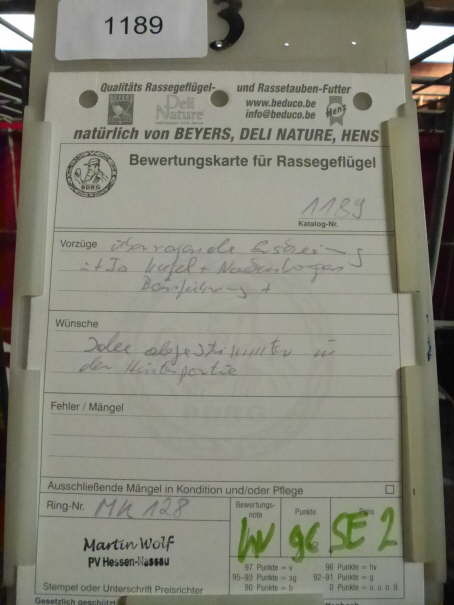 1189
3
Qualitäts Rassegeflügel- und Rassetauben-Futter
BEYERS Deli Nature www.beduco.be
info@beduco.be Hens
natürlich von BEYERS, DELI NATURE, HENS
BDRG
Bewertungskarte für Rassegeflügel
1189
Katalog-Nr.
Vorzüge
Wünsche
in
der Hinterpartie
Fehler / Mängel
Ausschließende Mängel in Kondition und/oder Pflege
Ring-Nr. MK 128
Bewertungs-note Punkte Preis
hv 96 SE 2
Martin Wolf
PV Hessen-Nassau
97 Punkte = v 96 Punkte = hv
95-93 Punkte = sg 92-91 Punkte = g
90 Punkte = b 0 Punkte = u o n
Stempel oder Unterschrift Preisrichter
Gesetzlich geschützt